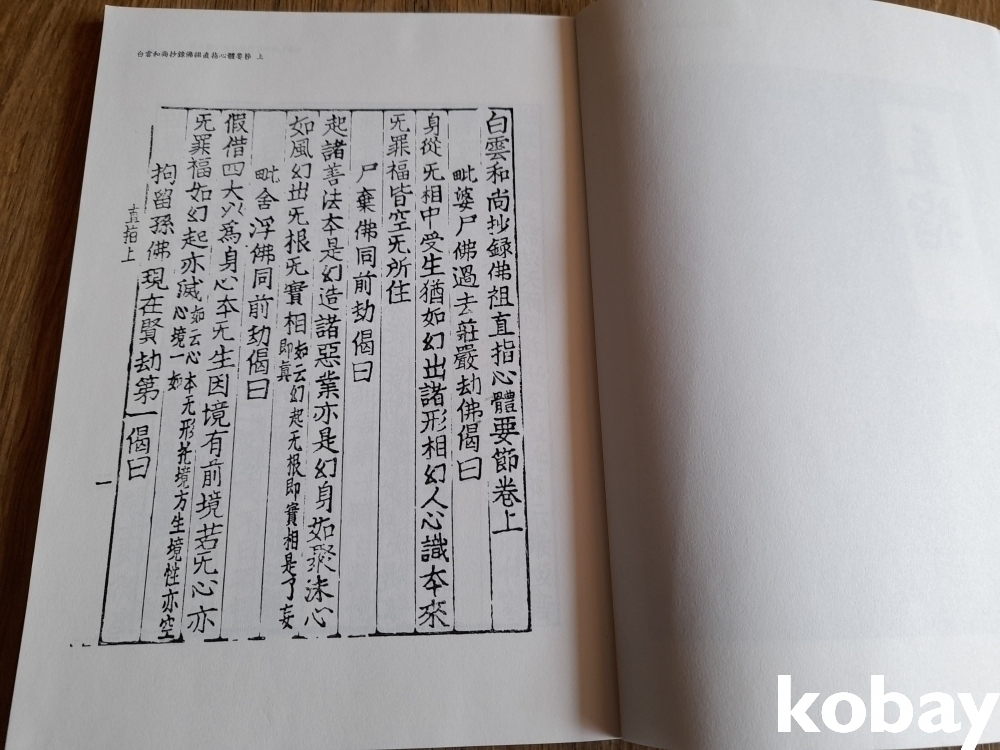 白雲和尚抄錄佛祖直指心體要節 上
白雲和尚抄録佛祖直指心體要節卷上
毗婆尸佛過去莊嚴劫佛偈曰
身從无相中受生猶如幻出諸形相幻人心識本來
无罪福皆空无所住
尸棄佛同前劫偈曰
起諸善法本是幻造諸惡業亦是幻身如聚沫心
如風幻出无根无實相如云幻起无根即實相是了妄
即真
毗舍浮佛同前劫偈曰
假借四大以爲身心本无生因境有前境若无心亦
无罪福如幻起亦滅如云心本无形托境方生境性亦空
心境一如
拘留孫佛現在賢劫第一偈曰
直指上
一
kobay